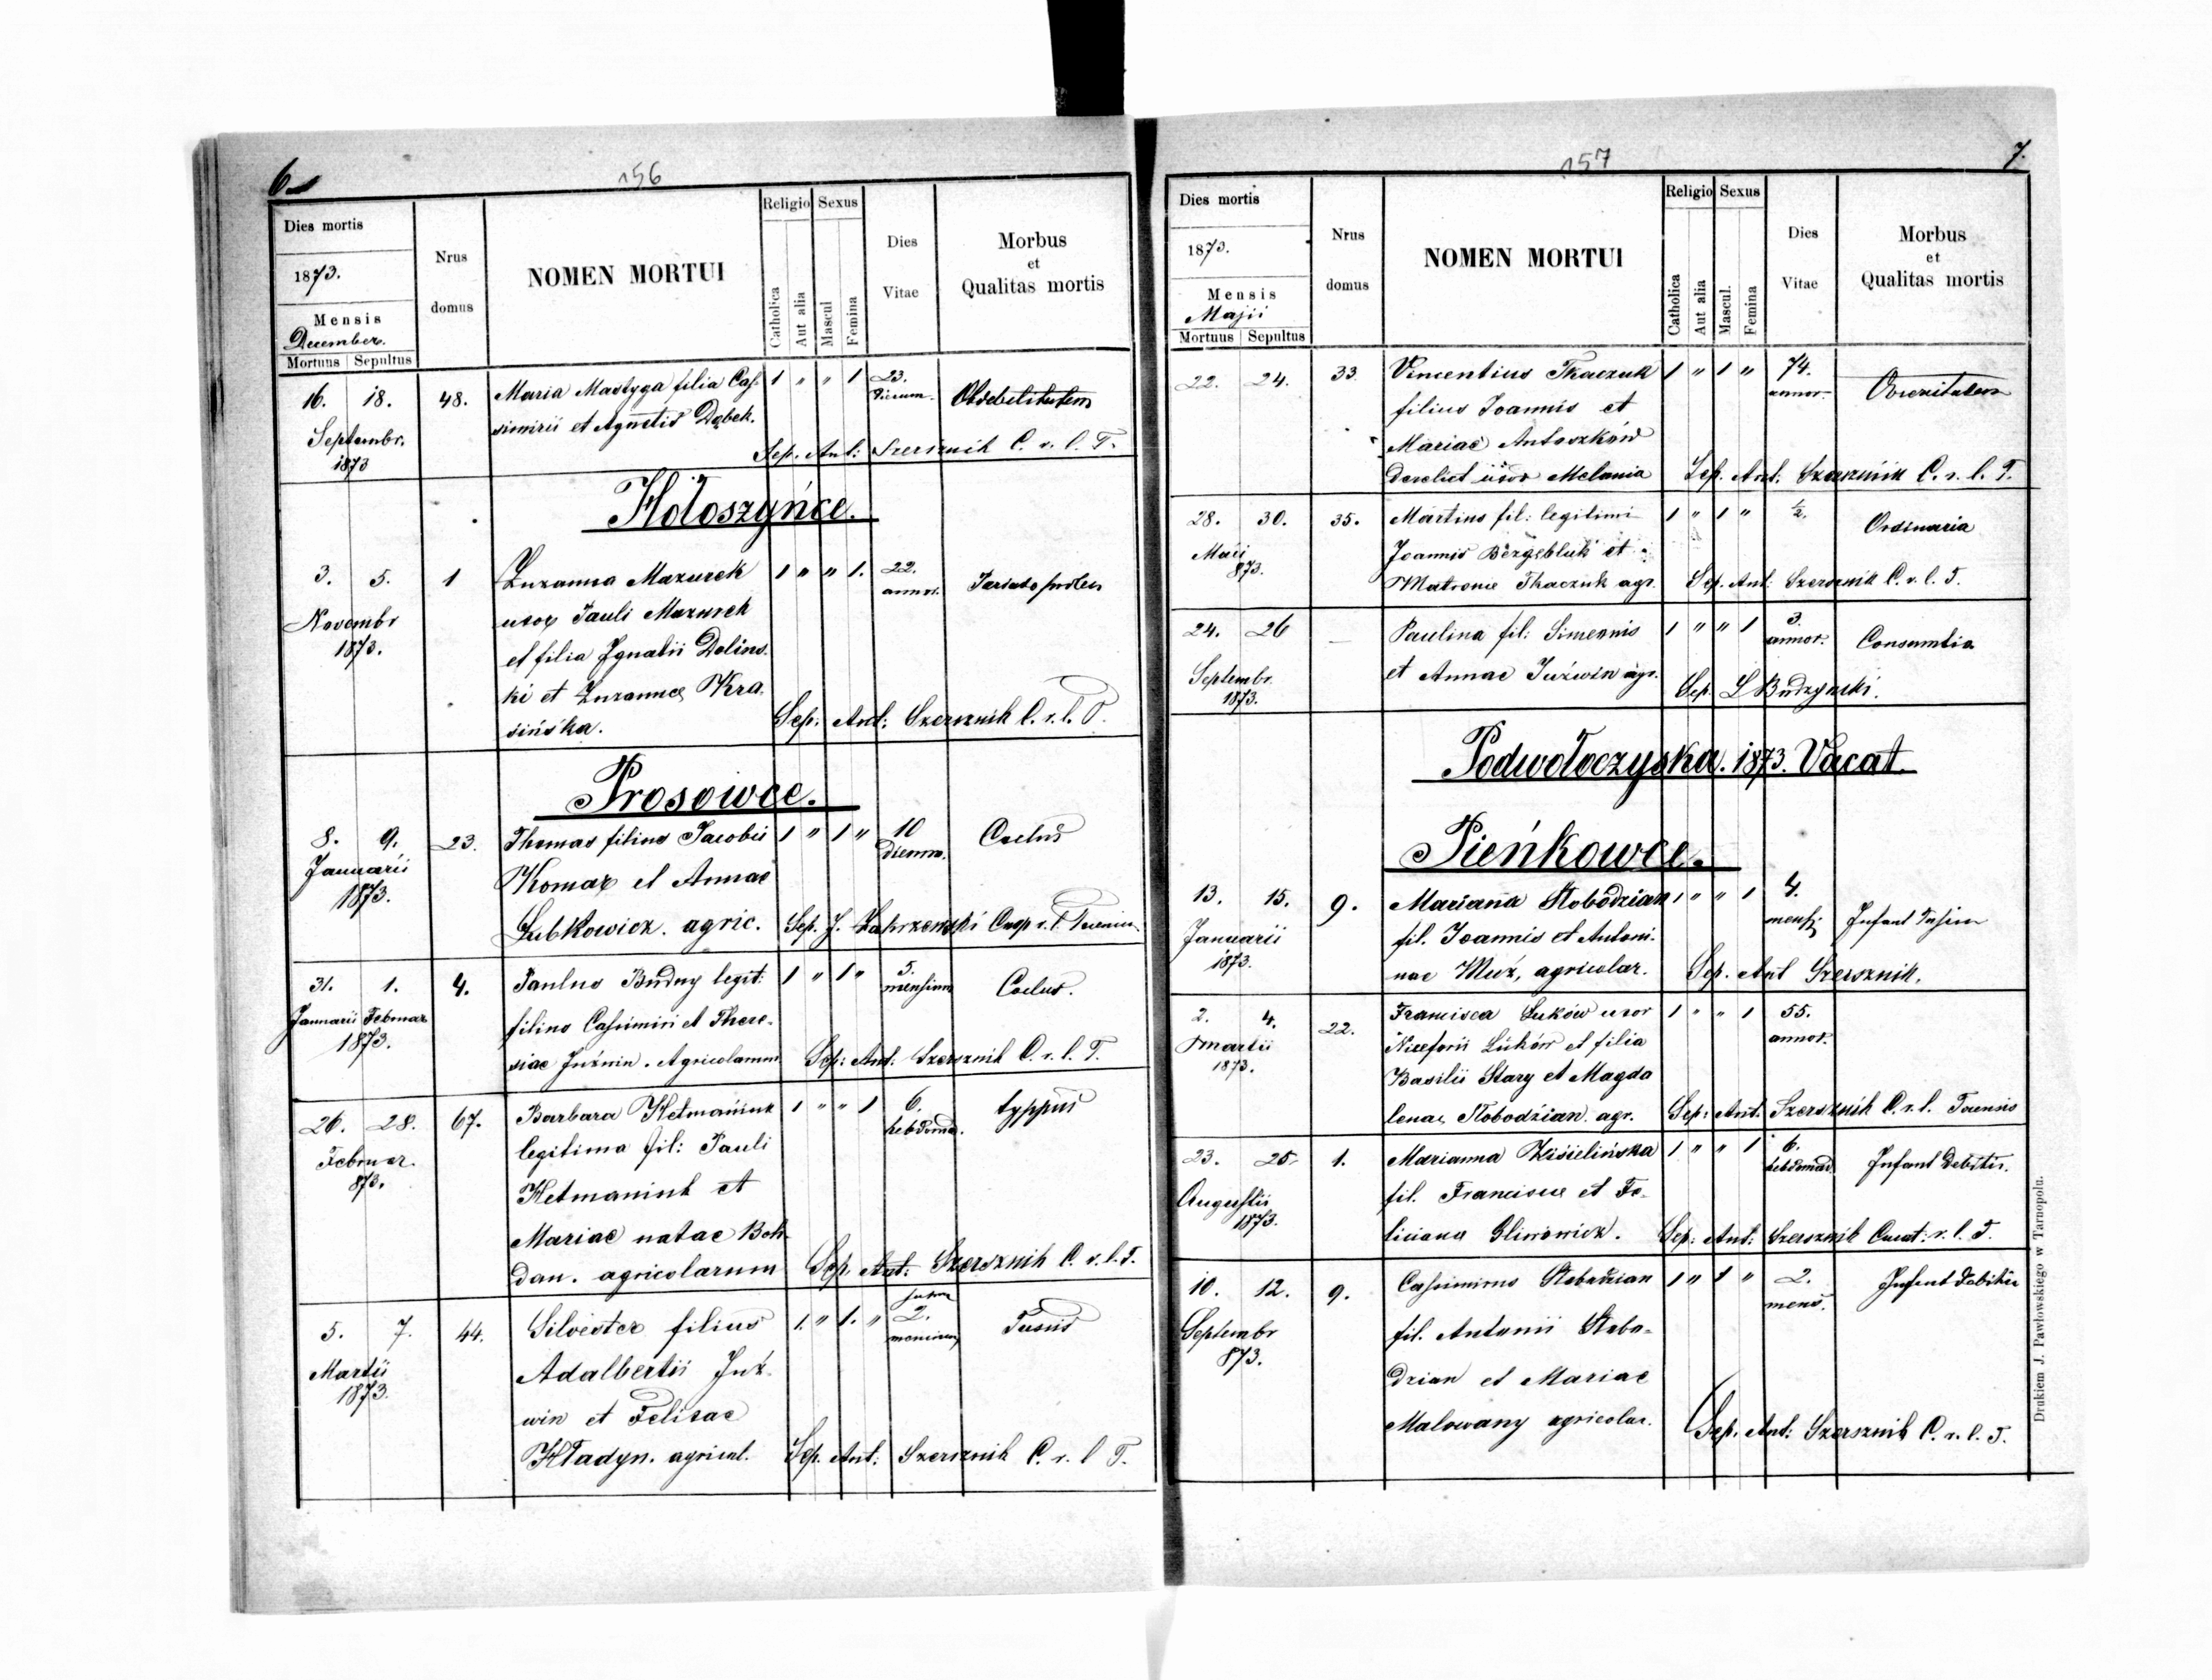 6
156
Dies mortis
1873.
Mensis
December.
Mortuus Sepultus
Nrus domus
NOMEN MORTUI
Religio Sexus
Catholica Aut alia Mascul Femina
Dies Vitae
Morbus et Qualitas mortis
16. 18. 48. Maria Mastyga filia Cas- 1 " " 1 23. dierum. Ob debilitatem
Septembr. simirii et Agnetis Dąbek.
1873 Sep. Ant: Szersznik C. r. l. T.
Hołoszyńce.
3. 5. 1 Zuzanna Mazurek 1 " " 1. 22. annor.
Novembr uxor Pauli Mazurek
1873. et filia Ignatii Dolins-
ki et Zuzannae Kra-
sińska. Sep: Ant: Szersznik C. r. l. T.
Prosowce.
8. 9. 23. Thomas filius Jacobi 1 " 1 " 10 dierum.
Januarii Komar et Annae
1873. Lubkowicz. agric. Sep. J. Zakrzewski
31. 1. 4. Paulus Budny legit: 1 " 1 " 5. mensium
Januarii Februar filius Cassimiri et There-
1873. siae Juźwin. Agricolarum Sep: Ant: Szersznik C. r. l. T.
26. 28. 67. Barbara Hetmaniuk 1 " " 1 6. hebdoma. typpus
Februar. legitima fil: Pauli
873. Hetmaniuk et
Mariae natae Boh-
dan. agricolarum Sep. Ant: Szersznik C. r. l. T.
5. 7. 44. Silvester filius 1. " 1. " 2. Tussis
Martii Adalbertii Juź-
1873. win et Felisae
Hładyn. agricol. Sep. Ant: Szersznik C. r. l T.
157
7.
Dies mortis
1873.
Mensis
Majii
Mortuus Sepultus
Nrus domus
NOMEN MORTUI
Religio Sexus
Catholica Aut alia Mascul. Femina
Dies Vitae
Morbus et Qualitas mortis
22. 24. 33 Vincentius Tkaczuk 1 " 1 " 74. annor.
filius Joannis et
Mariae Antoszków
derelict uxor Melania Sep. Ant: Szersznik C. r. l. T.
28. 30. 35. Martinus fil: legitimi 1 " 1 " ½. Ordinaria
Maii Joannis et
873. Matronae Tkaczuk agr. Sep. Ant: Szersznik C. r. l. T.
24. 26 — Paulina fil: Simeonis 1 " " 1 3. annor.
Septembr. et Annae Juźwin agr.
1873. Sep. L Budzynski.
Podwołoczyska. 1873. Vacat
Pieńkowce.
13. 15. 9. Marianna Słobodzian 1 " " 1 4. mens.
Januarii fil. Joannis et Antoni-
1873. nae Muź, agricolar. Sep. Ant Szersznik.
2. 4. 22. Francisca Luków uxor 1 " " 1 55. annor.
Martii Niceforii Luków et filia
1873. Basilii Stary et Magda
lenae Słobodzian. agr. Sep: Ant. Szersznik C. r. l.
23. 25. 1. Marianna Kisielińska 1 " " 1 6. hebdomad.
Augustii fil. Francisce et Fe-
1873. liciana Gliwowicz. Sep: Ant: Szersznik Curat: r. l. T.
10. 12. 9. Cassimirus Słobodzian 1 " 1 " 2. mens.
Septembr fil. Antonii Słobo-
873. dzian et Mariae
Malowany agricolar. Sep. Ant: Szersznik C. r. l. T.
Drukiem J. Pawłowskiego w Tarnopolu.